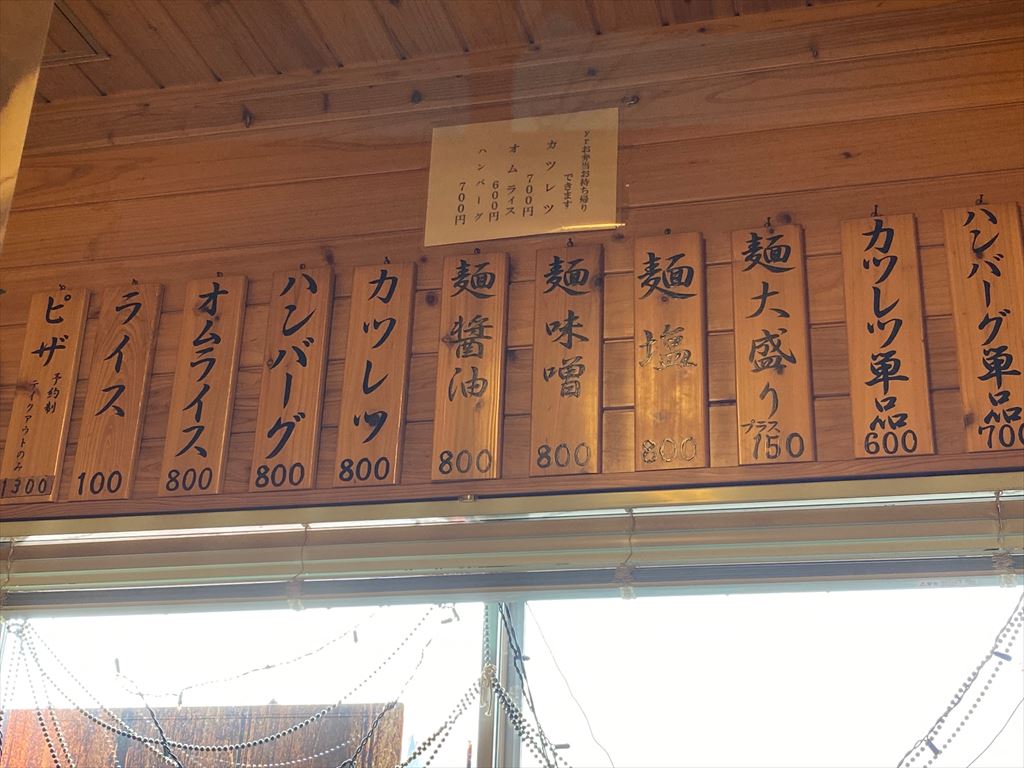 お弁当お持ち帰り
できます
カツレツ
700円
オムライス
600円
ハンバーグ
700円
ハンバーグ単品
700
カツレツ単品
600
麺大盛り
プラス
150
麺塩
800
麺味噌
800
麺醤油
800
カツレツ
800
ハンバーグ
800
オムライス
800
ライス
100
ピザ
予約制
テイクアウトのみ
1300